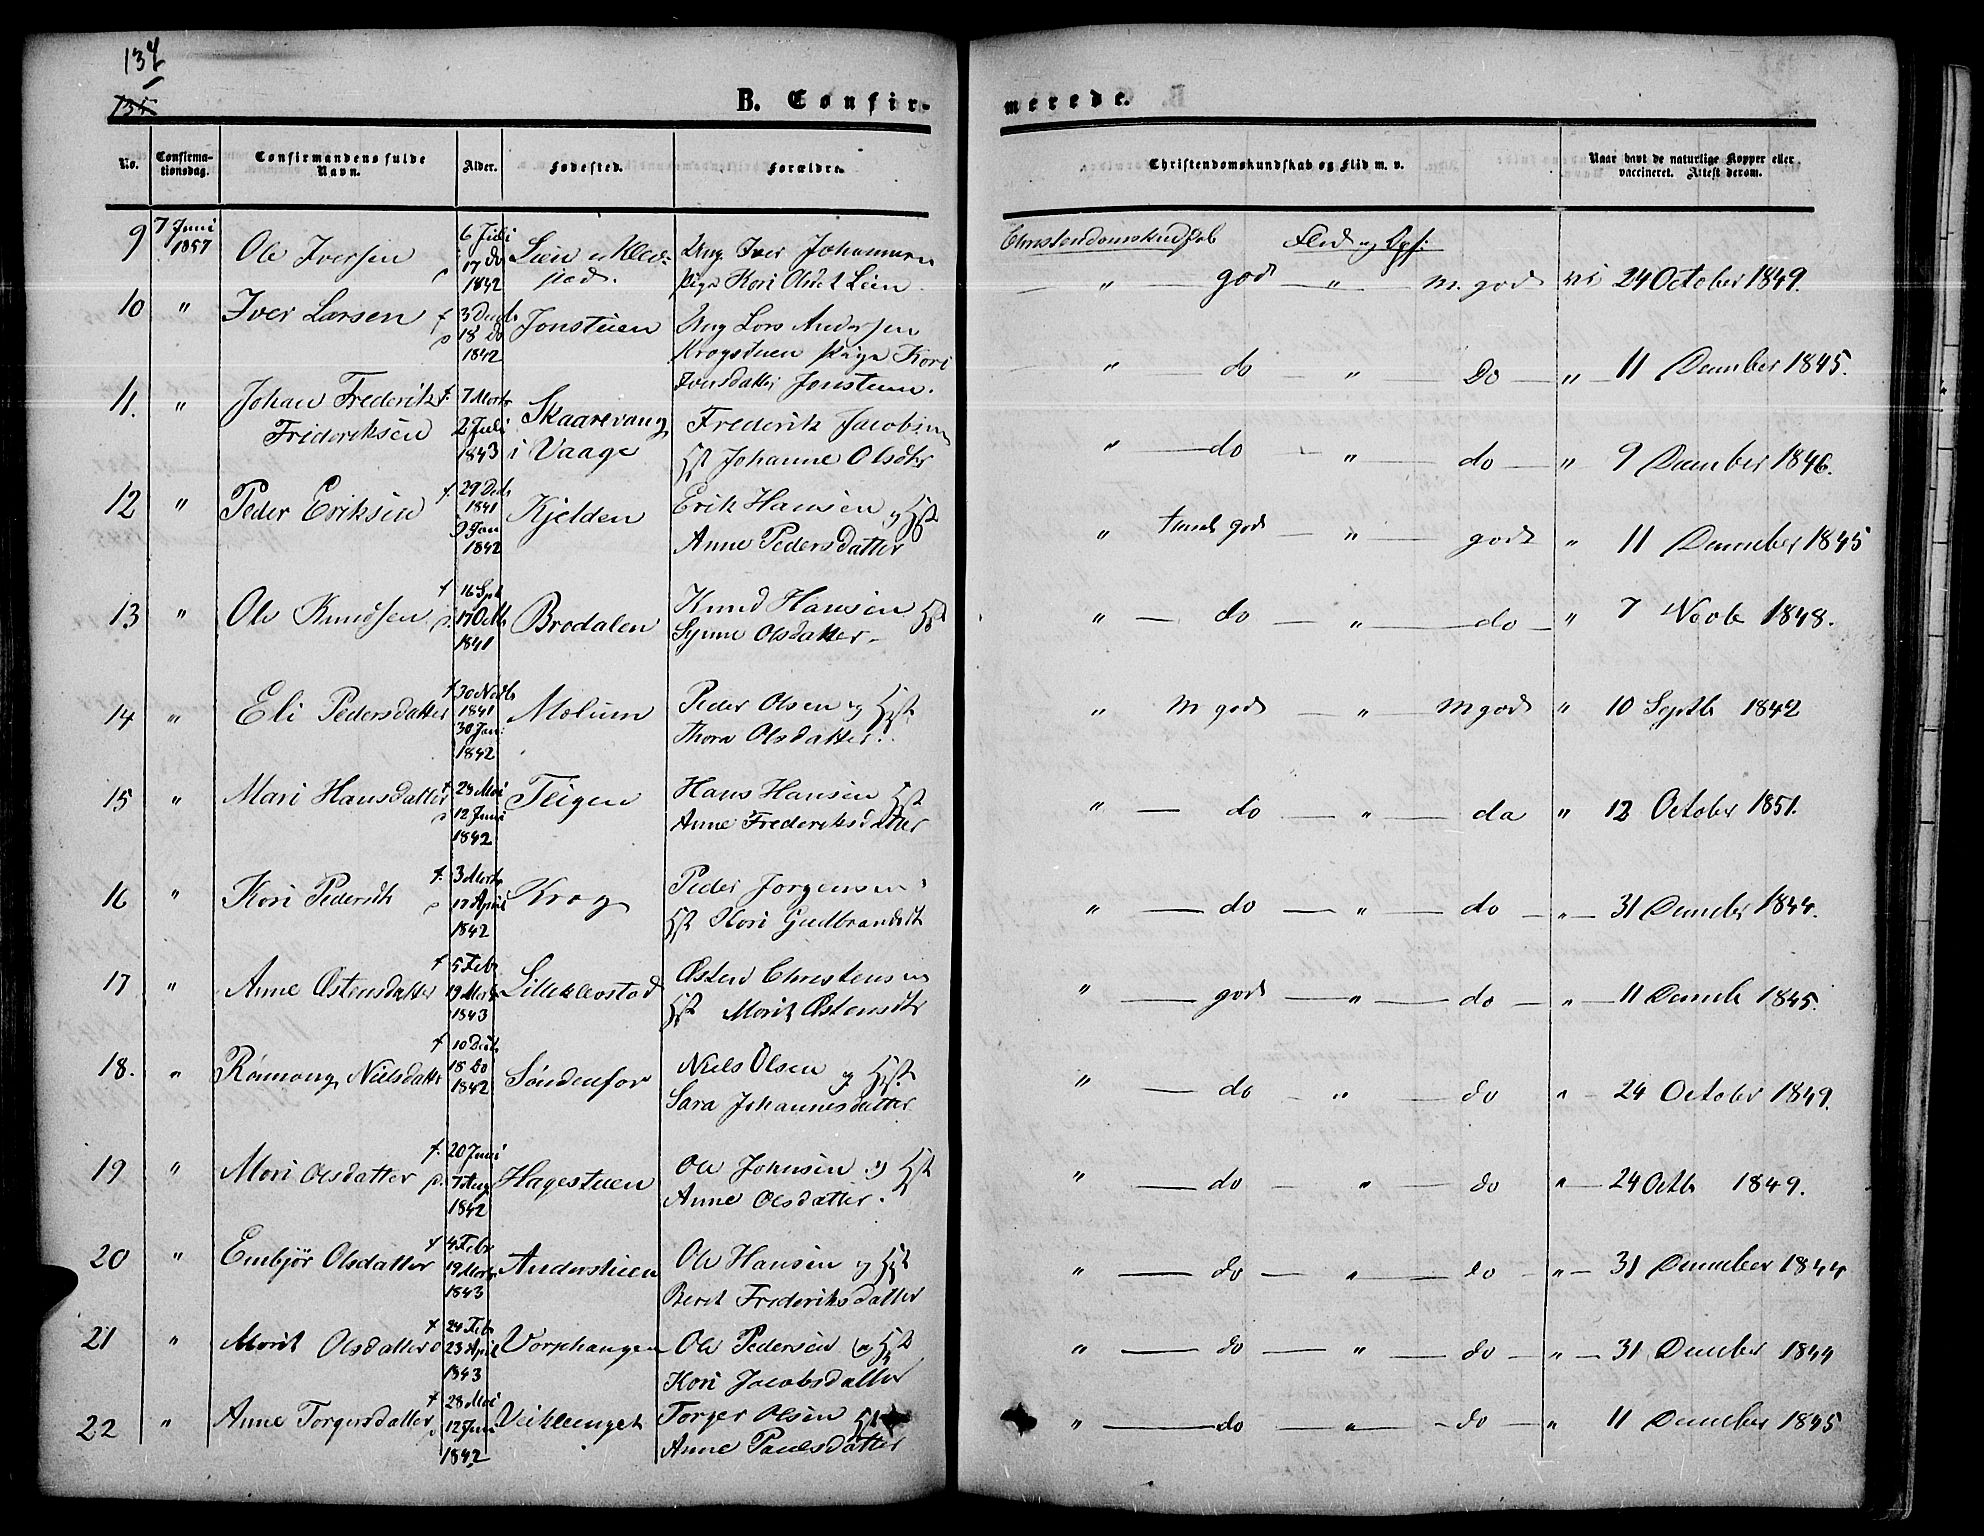 134
135
B. Confir-
merede.
No.
Confirma-
tionsdag.
Confirmandens fulde
Navn.
Alder.
Fødested.
Forældre.
Christendomskundskab og Flid m. v.
Naar havt de naturlige Kopper eller
vaccineret. Attest derom.
Christendomskundskab Flid og Opf:
9 7 Juni 1857 Ole Iversen 6 Juli 17 Do 1842 Lien Ung. Iver Johannesen
Pige Kori Olsdt Lien
" god " m. god 24 October 1849.
10 " Iver Larsen f 3 Decb 18 Do 1842 Jonstuen Ung Lars Andersen
Krogstuen Pige Kori
Iversdatter Jonstuen.
" do " Do " 11 December 1845.
11. " Johan Frederik
Frederiksen f 7 Marts 2 Juli 1843 Skaarevang
i Vaage Frederik Jacobsen
Hst Johanne Olsdtr
" do " do " 9 December 1846.
12 " Peder Eriksen f 29 Decb 1841 9 Jan 1842 Kjelden Erik Hansen og Hst
Anne Pedersdatter
" temel god " god " 11 December 1845
13 " Ole Knudsen f 16 Spt 17 Octb 1841 Brodalen Knud Hansen Hst
Synne Olsdatter
" do " do " 7 Novb 1848.
14 " Eli Pedersdatter f 30 Novb 1841 30 Jan: 1842 Molum Peder Olsen og Hst
Thora Olsdatter.
" M god " M god " 10 Septb 1842
15 " Mari Hansdatter f 29 Mai 12 Juni 1842 Teigen Hans Hansen Hst
Anne Frederiksdatter
" do " do " 12 October 1851.
16 " Kori Pedersdt f. 3 Marts 17 April 1842 Krog Peder Jorgensen
Hst Kori Gudbrandsdt
" do " do " 31 December 1844.
17 " Anne Østensdatter f 5 Febr 19 Marts 1843 Lillekleostad Østen Christensen
Hst Marit Østensdtr
" god " do " 11 Decemb 1845.
18. " Rønnoug Nielsdatter f 10 Decb 18 Do 1842 Søndenfor Niels Olsen og Hst.
Sara Johannesdatter
" do " do " 24 October 1849.
19 " Mari Olsdatter f. 20 Juni 7 Aug 1842 Hagestuen Ole Johnsen og Hst
Anne Olsdatter.
" do " do " 24 Octb 1849.
20 " Embjør Olsdatter f 4 Febr 19 Marts 1843 Anderstuen Ole Hansen og Hst
Berit Frederiksdatter
" do " do " 31 December 1844
21 " Marit Olsdatter f 24 Feb 23 April 1843 Vorphaugen Ole Pedersen og Hst
Kori Jacobsdatter
" do " do " 31 December 1844
22 " Anne Torgersdatter f 28 Mai 12 Juni 1842 Veiklenget Torger Olsen Hst
Anne Paulsdatter
" do " do " 11 December 1845